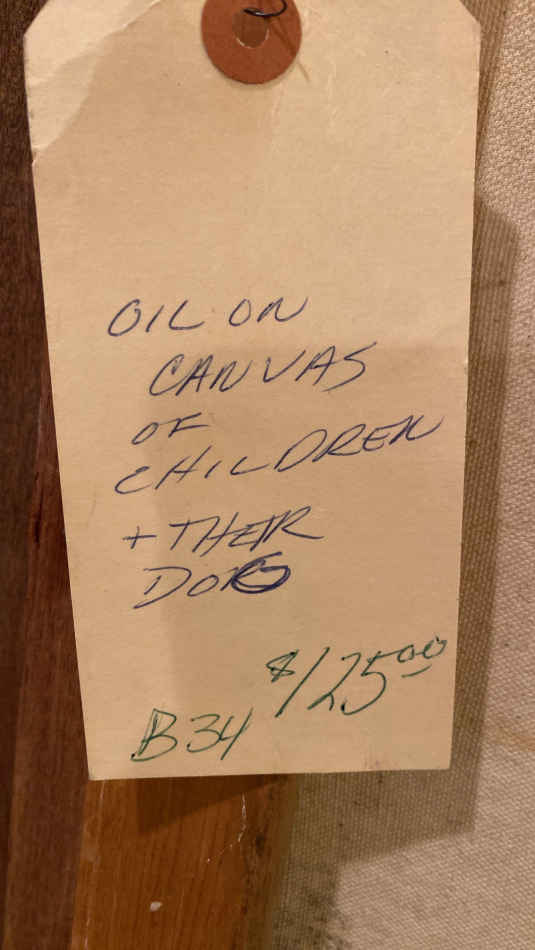 OIL ON
CANVAS
OF
CHILDREN
+ THEIR
DOG
$125.00
B34